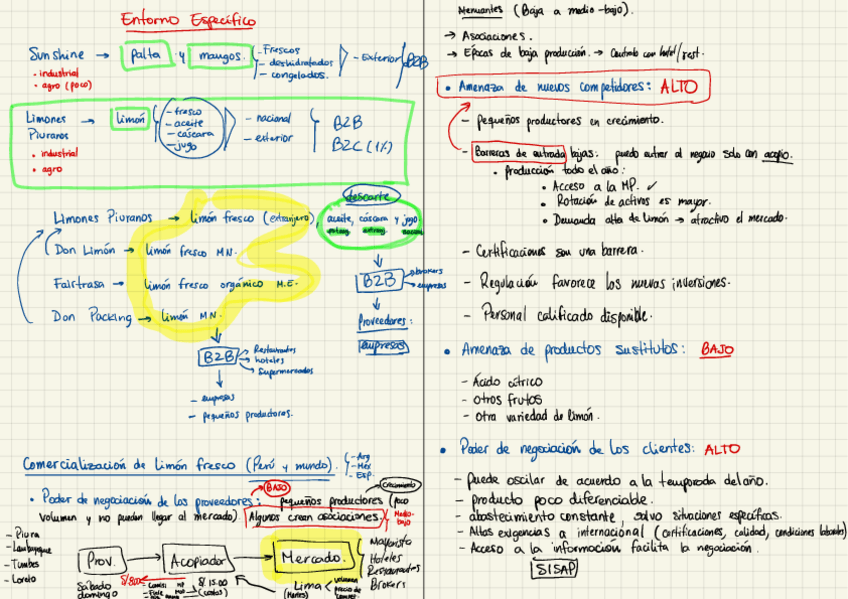 Entorno Específico
Sunshine → palta y mangos. - Frescos - deshidratados - congelados. - Exterior B2B
• industrial
• agro (poco)
Limones Piuranos → limón - fresco - aceite - cáscara - jugo - nacional - exterior B2B B2C (1%)
• industrial
• agro
descarte
Limones Piuranos → limón fresco (extranjero), aceite, cáscara y jugo
Don Limón → limón fresco MN.
Fairtrasa → limón fresco orgánico M.E.
Don Packing → limón MN.
B2B → brokers → empresas
Proveedores:
empresas
B2B Restaurantes hoteles Supermercados
- empresas
- pequeños productores.
Comercialización de limón fresco (Perú y mundo). - Arg - Méx - Esp.
BAJO Crecimiento
• Poder de negociación de los proveedores: pequeños productores (poco
volumen y no pueden llegar al mercado) Algunos crean asociaciones. Medio-bajo
- Piura
- Lambayeque
- Tumbes
- Loreto
Prov. → Acopiador → Mercado.
Mayorista
Hoteles
Restaurantes
Brokers
Sábado
domingo
S/. 15.00
(costos)
Lima
(Martes)
volumen
precio de
Menuantes (Baja a medio-bajo).
→ Asociaciones.
→ Épocas de baja producción. → Contrato con hotel/rest.
• Amenaza de nuevos competidores: ALTO
- pequeños productores en crecimiento.
- Barreras de entrada bajas: puedo entrar al negocio solo con acopio.
• Producción todo el año:
• Acceso a la MP. ✓
• Rotación de activos es mayor.
• Demanda alta de limón → atractivo el mercado.
- Certificaciones son una barrera.
- Regulación favorece los nuevas inversiones.
- Personal calificado disponible.
• Amenaza de productos sustitutos: BAJO
- Ácido cítrico
- otros frutos
- Otra variedad de limón.
• Poder de negociación de los clientes: ALTO
- puede oscilar de acuerdo a la temporada del año.
- producto poco diferenciable.
- abastecimiento constante, salvo situaciones específicas.
- Altas exigencias a internacional (certificaciones, calidad, condiciones laborales)
- Acceso a la información facilita la negociación.
SISAP